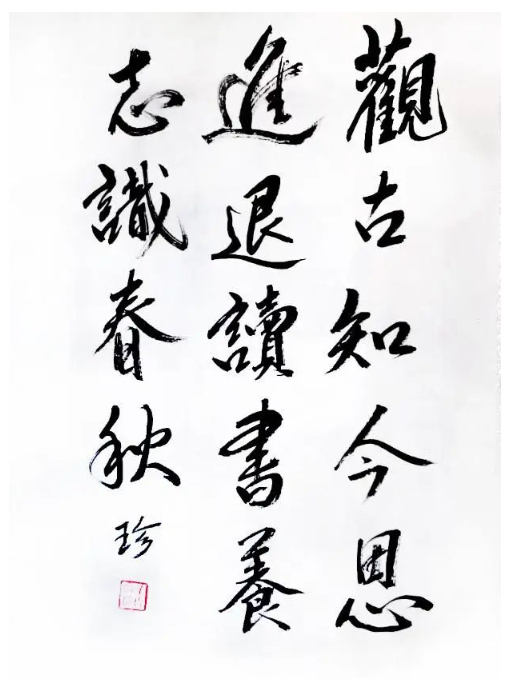 觀古知今思
進退讀書養
志識春秋
珍